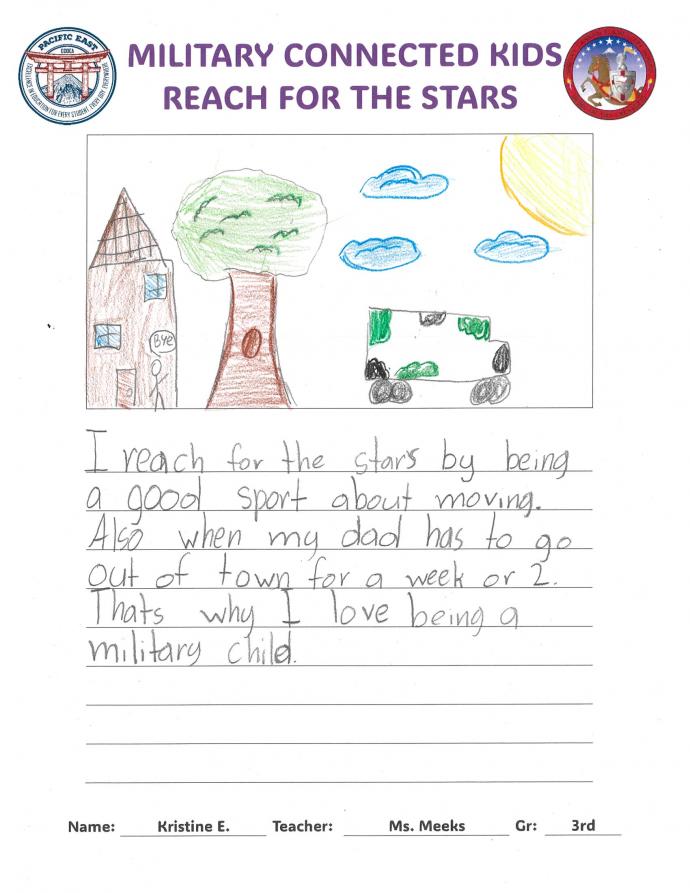 PACIFIC EAST
DODEA
EXCELLENCE IN EDUCATION FOR EVERY STUDENT, EVERY DAY, EVERYWHERE
MILITARY CONNECTED KIDS
REACH FOR THE STARS
Bye
I reach for the stars by being
a good sport about moving.
Also when my dad has to go
out of town for a week or 2.
Thats why I love being a
military child.
Name: Kristine E. Teacher: Ms. Meeks Gr: 3rd